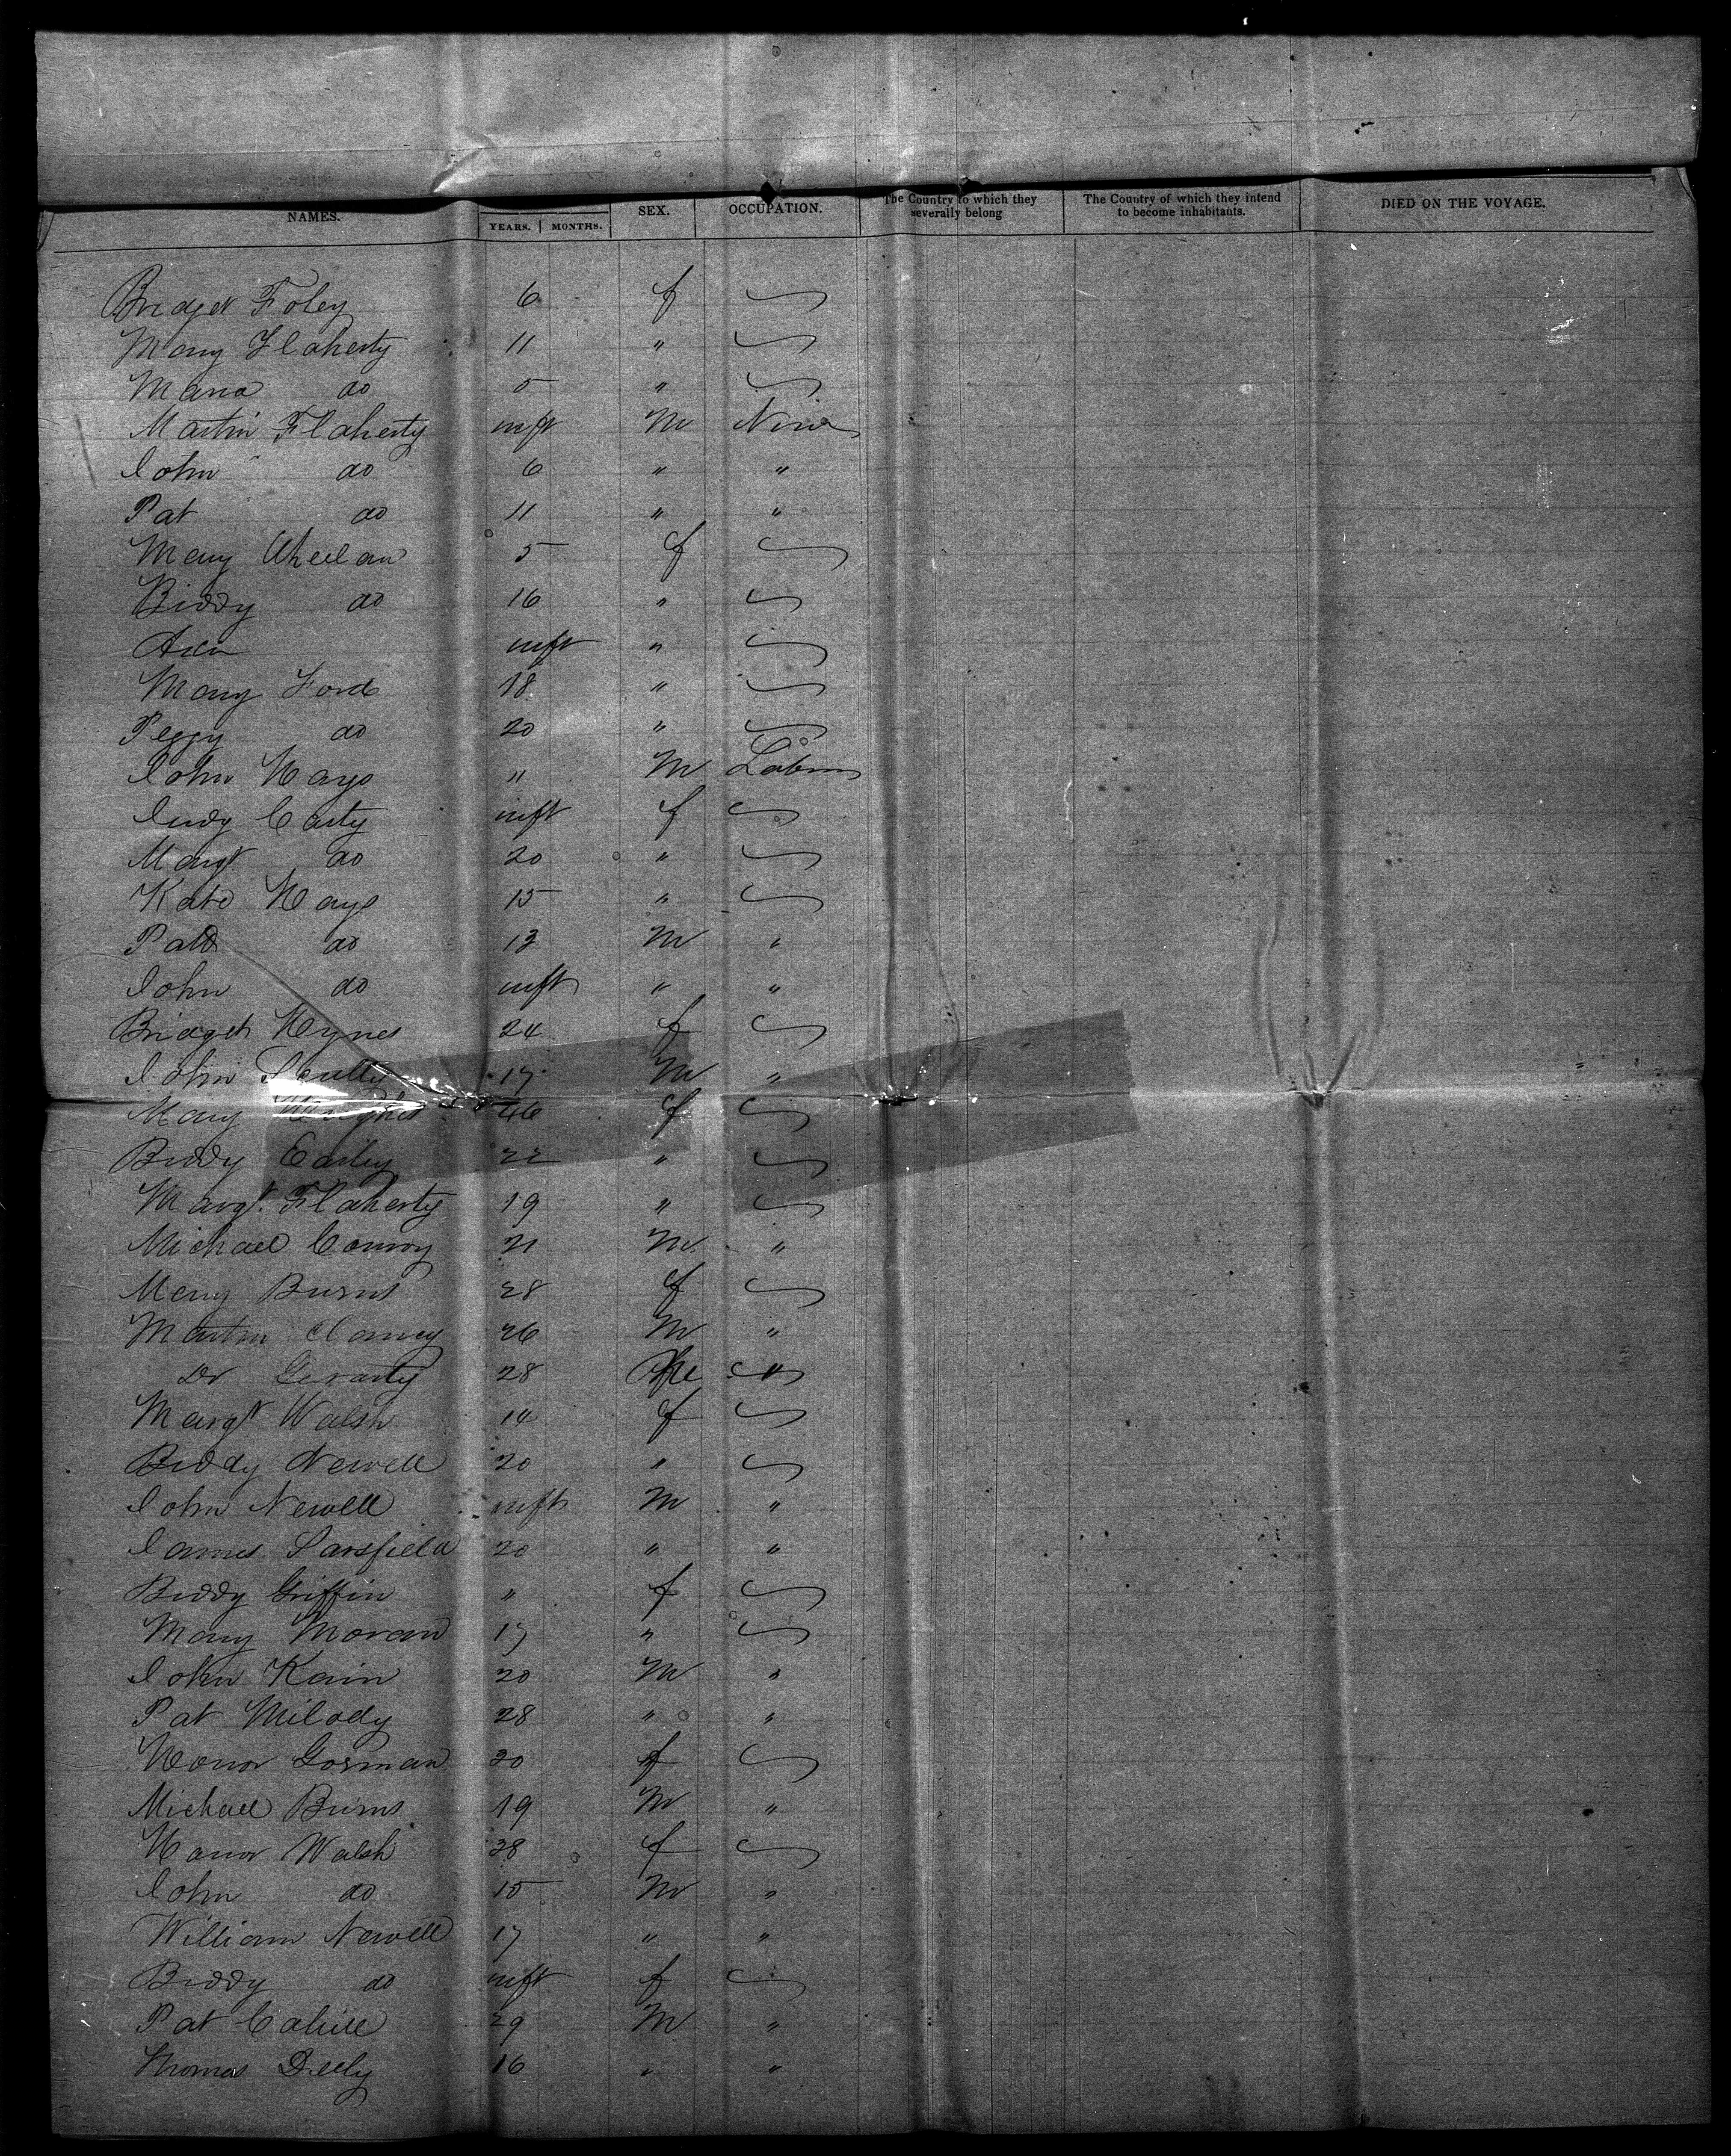 NAMES. YEARS. MONTHS. SEX. OCCUPATION. The Country to which they severally belong The Country of which they intend to become inhabitants. DIED ON THE VOYAGE.
Bridget Foley 6 f
Mary Flaherty 11 "
Maria do 5 "
Martin Flaherty inft M None
John do 6 " "
Pat do 11 " "
Mary Whelan 5 f
Biddy do 16 "
inft "
Mary Ford 18 "
Peggy do 20 "
John Hays " M Labour
Judy Carty inft f
Margt do 20 "
Kate Hays 15 "
Patk do 13 M "
John do inft " "
Bridget Hynes 24 f
John Scully 17 M "
Mary 46 f
Biddy Earley 22 "
Margt. Flaherty 19 "
Michael Conroy 21 M "
Mary Burns 28 f
Martin 26 M "
Do Gerarty 28 "
Margt Walsh 14 f
Biddy Newell 20 "
John Newell inft M "
James Sarsfield 20 " "
Biddy Griffin " f
Mary Moran 17 "
John Kain 20 M "
Pat Milody 28 " "
Honor Gorman 20 f
Michael Burns 19 M "
Honor Walsh 28 f
John do 15 M "
William Newell 17 " "
Biddy do inft f
Pat Cahill 29 M "
Thomas Deely 16 " "